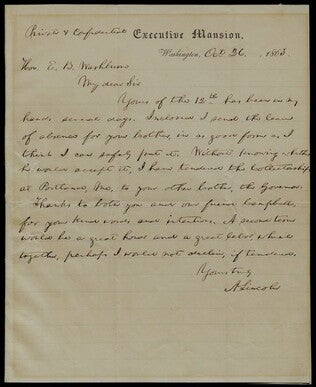 Private & Confidential
Executive Mansion,
Washington, Oct 26, 1863.
Hon. E. B. Washburne
My dear Sir
Yours of the 12th has been in my
hands several days. Inclosed I send the leave
of absence for your brother, in as good form as I
think I can safely put it. Without knowing whether
he would accept it, I have tendered the Collectorship
at Portland, Me, to your other brother, the Governor.
Thanks to both you and our friend Campbell,
for your kind words and intentions. A second term
would be a great honor and a great labor, which
together, perhaps I would not decline, if tendered.
Yours truly
A. Lincoln